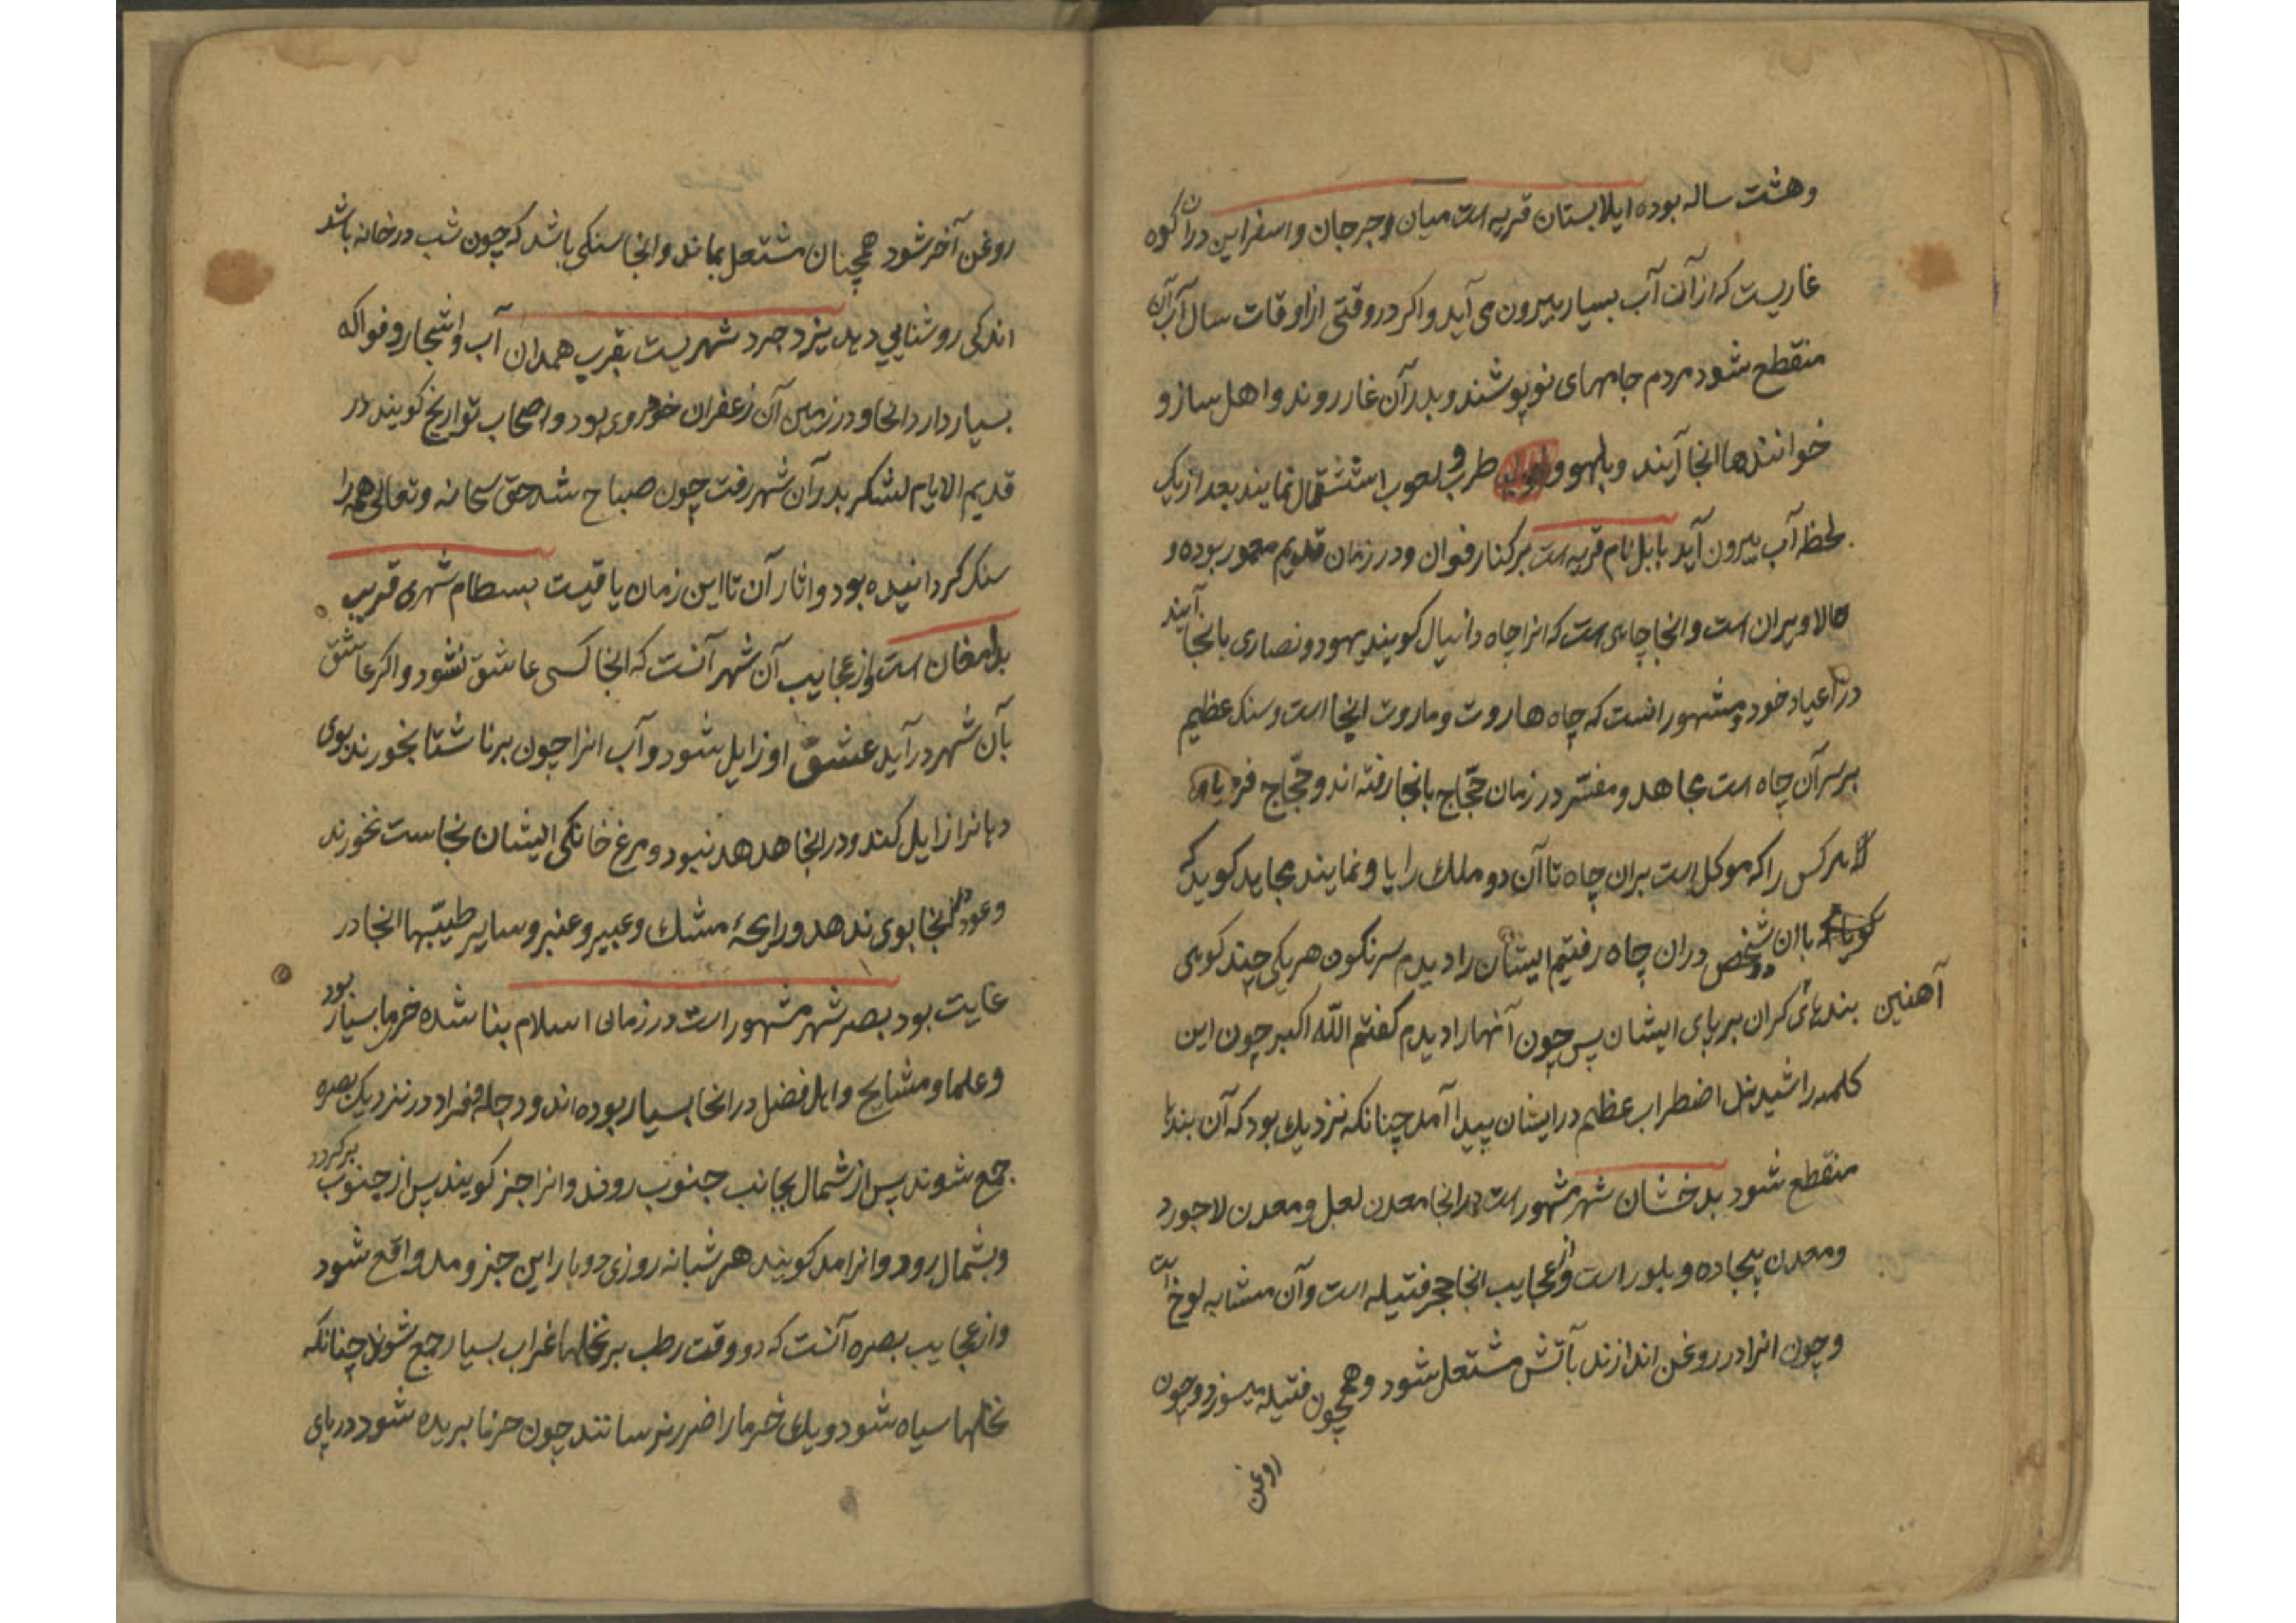 وهشت ساله بوده ایلابستان قریه است میان و جرجان و اسفراین دران کوه
غاریست که از آن آب بسیار بیرون می آید و اکر در وقتی از اوقات سال آب آن
منقطع شود مردم جامهای نو پوشند و بدر آن غار روند و اهل ساز و
خوانندها انجا آیند و بلهو و طرب و لعوب اشتغال نمایند بعد از یک
لحظه آب بیرون آید بابل نام قریه است بر کنار فوان و در زمان قدیم معمور بوده و
حالا ویران است و انجا چاهی است که انرا چاه دانیال کویند یهود و نصاری بانجا آیند
در اعیاد خود و مشهور انست که چاه هاروت و ماروت اینجا است و سنک عظیم
بر سر آن چاه است مجاهد و مفسر در زمان حجّاج بانجا رفته اند و حجّاج فرد باو
کس را که موکل است بران چاه تا آن دو ملک را باو نمایند مجاهد کوید که
با ان شخص دران چاه رفتیم ایشان را دیدم سرنکون هر یکی چند کوهی
آهنین بندهای کران بر پای ایشان پس چون آنها را دیدم کفتم اللّه اکبر چون این
کلمه را شیدند اضطراب عظیم در ایشان پیدا آمد چنانکه نزدیک بود که آن بندها
منقطع شود بدخشان شهر مشهور است در انجا معدن لعل و معدن لاجورد
و معدن بیجاده و بلور است و از عجایب انجا حجر فتیله است و آن مشابه لوخ است
و چون انرا در روغن اندازند بآتش مشتعل شود و همچون فتیله میسوزد و چون
روغن
روغن آخر شود همچنان مشتعل بماند و انجا سنکی باشد که چون شب در خانه باشد
اندکی روشنایی دهد یزدجرد شهریست بقرب همدان آب و اشجار و فواکه
بسیار دارد انجا و در زمین آن زعفران خودروی بود و اصحاب تواریخ کویند در
قدیم الایام لشکر بدر آن شهر رفت چون صباح شد حق سبحانه و تعالی همه را
سنک کردانیده بود و اثار آن تا این زمان باقیست بسطام شهری قریب
بدامغان است و از عجایب آن شهر آنست که انجا کسی عاشق نشود و اکر عاشق
بآن شهر درآید عشق او زایل شود و آب انرا چون بر ناشتا بخورند بوی
دهانرا زایل کند و در انجا هدهد نبود و مرغ خانکی ایشان نجاست نخورند
و عود در انجا بوی ندهد و رایحهٔ مشک و عبیر و عنبر و سایر طیبها انجا در
غایت بود بصره شهر مشهور است در زمان اسلام بنا شده خرما بسیار بود
و علما و مشایخ و اهل فضل در انجا بسیار بوده اند و دجله و فراد در نزدیک بصره
جمع شوند پس از شمال بجانب جنوب روند و انرا جزر کویند پس از جنوب برکردد
و بشمال رود و انرا مد کویند هر شبانه روزی دو بار این جزر و مد واقع شود
و از عجایب بصره آنست که در وقت رطب بر نخلها غراب بسیار جمع شوند چنانکه
نخلها سیاه شود و یک خرما را ضرر نرسانند چون خرما بریده شود در پای